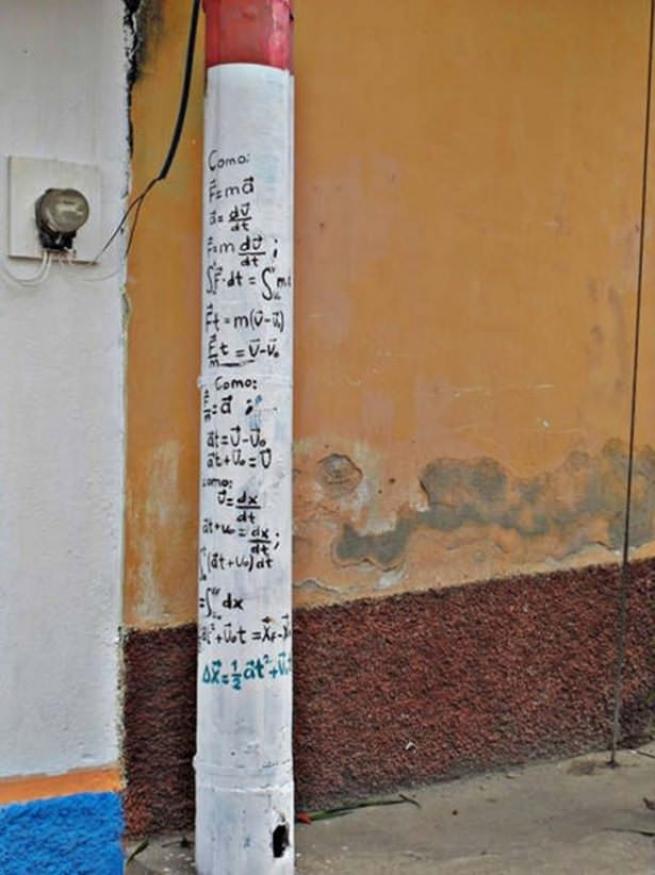 Como:
F⃗=ma⃗
a⃗=dv⃗/dt
F⃗=m dv⃗/dt ;
∫F⃗·dt = ∫m
F⃗t = m(v⃗-v⃗₀)
F⃗/m t = v⃗-v⃗₀
Como:
F⃗/m=a⃗ ;
a⃗t=v⃗-v⃗₀
a⃗t+v⃗₀=v⃗
Como:
v⃗=dx/dt
a⃗t+v₀=dx/dt;
∫(a⃗t+v₀)dt
=∫dx
t²+v⃗₀t =x⃗f-x⃗
Δx⃗=½a⃗t²+v⃗₀t